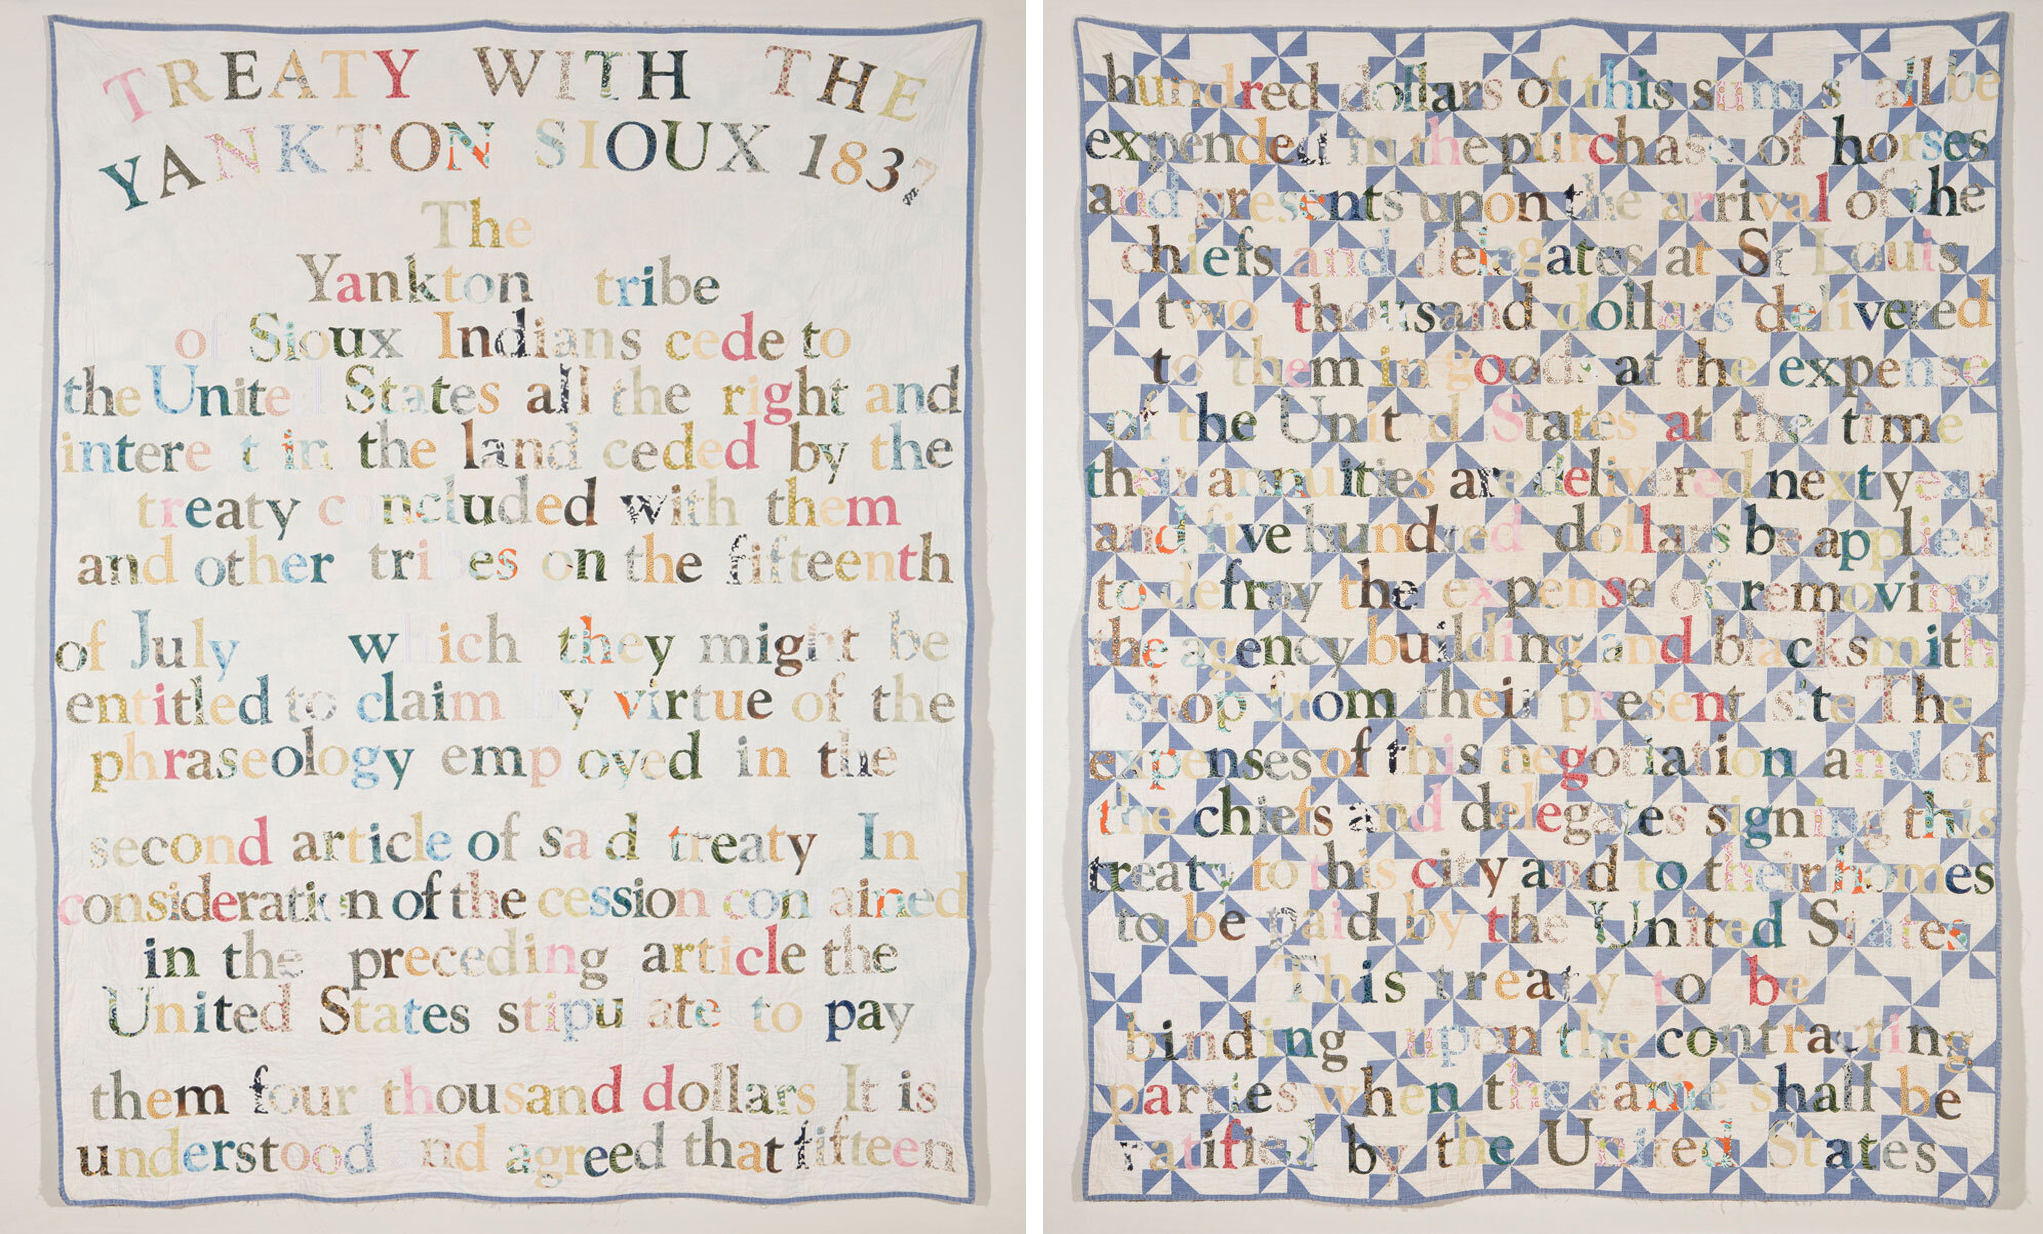 TREATY WITH THE
YANKTON SIOUX 1837
The
Yankton tribe
of Sioux Indians cede to
the United States all the right and
interest in the land ceded by the
treaty concluded with them
and other tribes on the fifteenth
of July which they might be
entitled to claim by virtue of the
phraseology employed in the
second article of said treaty In
consideration of the cession contained
in the preceding article the
United States stipulate to pay
them four thousand dollars It is
understood and agreed that fifteen
hundred dollars of this sum shall be
expended in the purchase of horses
and presents upon the arrival of the
chiefs and delegates at St Louis
two thousand dollars delivered
to them in goods at the expense
of the United States at the time
their annuities are delivered next year
and five hundred dollars be applied
to defray the expense of removing
the agency building and blacksmith
shop from their present site The
expenses of this negotiation and of
the chiefs and delegates signing this
treaty to this city and to their homes
to be paid by the United States
This treaty to be
binding upon the contracting
parties when the same shall be
ratified by the United States